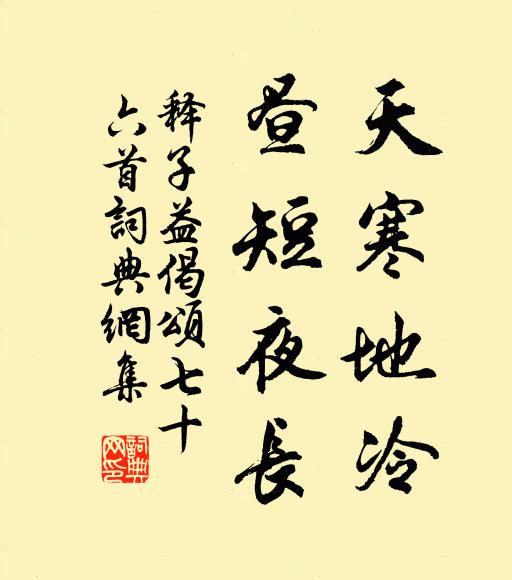 天寒地冷
昼短夜長
释子益偈頌七十
六首詞典網集
詞典网印